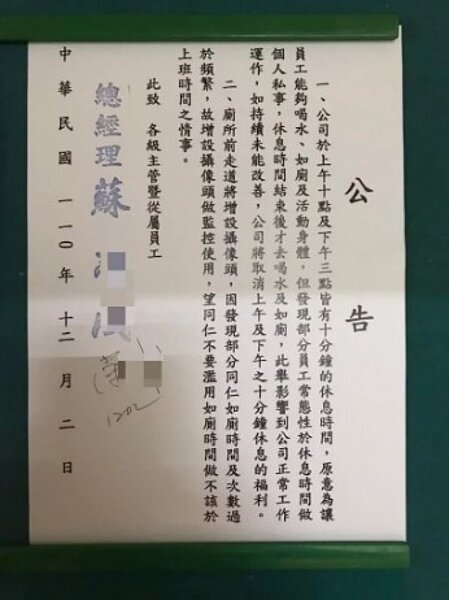 公告
一、公司於上午十點及下午三點皆有十分鐘的休息時間，原意為讓
員工能夠喝水、如廁及活動身體，但發現部分員工常態性於休息時間做
個人私事，休息時間結束後才去喝水及如廁，此舉影響到公司正常工作
運作，如持續未能改善，公司將取消上午及下午之十分鐘休息的福利。
二、廁所前走道將增設攝像頭，因發現部分同仁如廁時間及次數過
於頻繁，故增設攝像頭做監控使用，望同仁不要濫用如廁時間做不該於
上班時間之情事。
此致 各級主管暨從屬員工
總經理蘇
1202
中華民國 一一〇年 十二月 二日